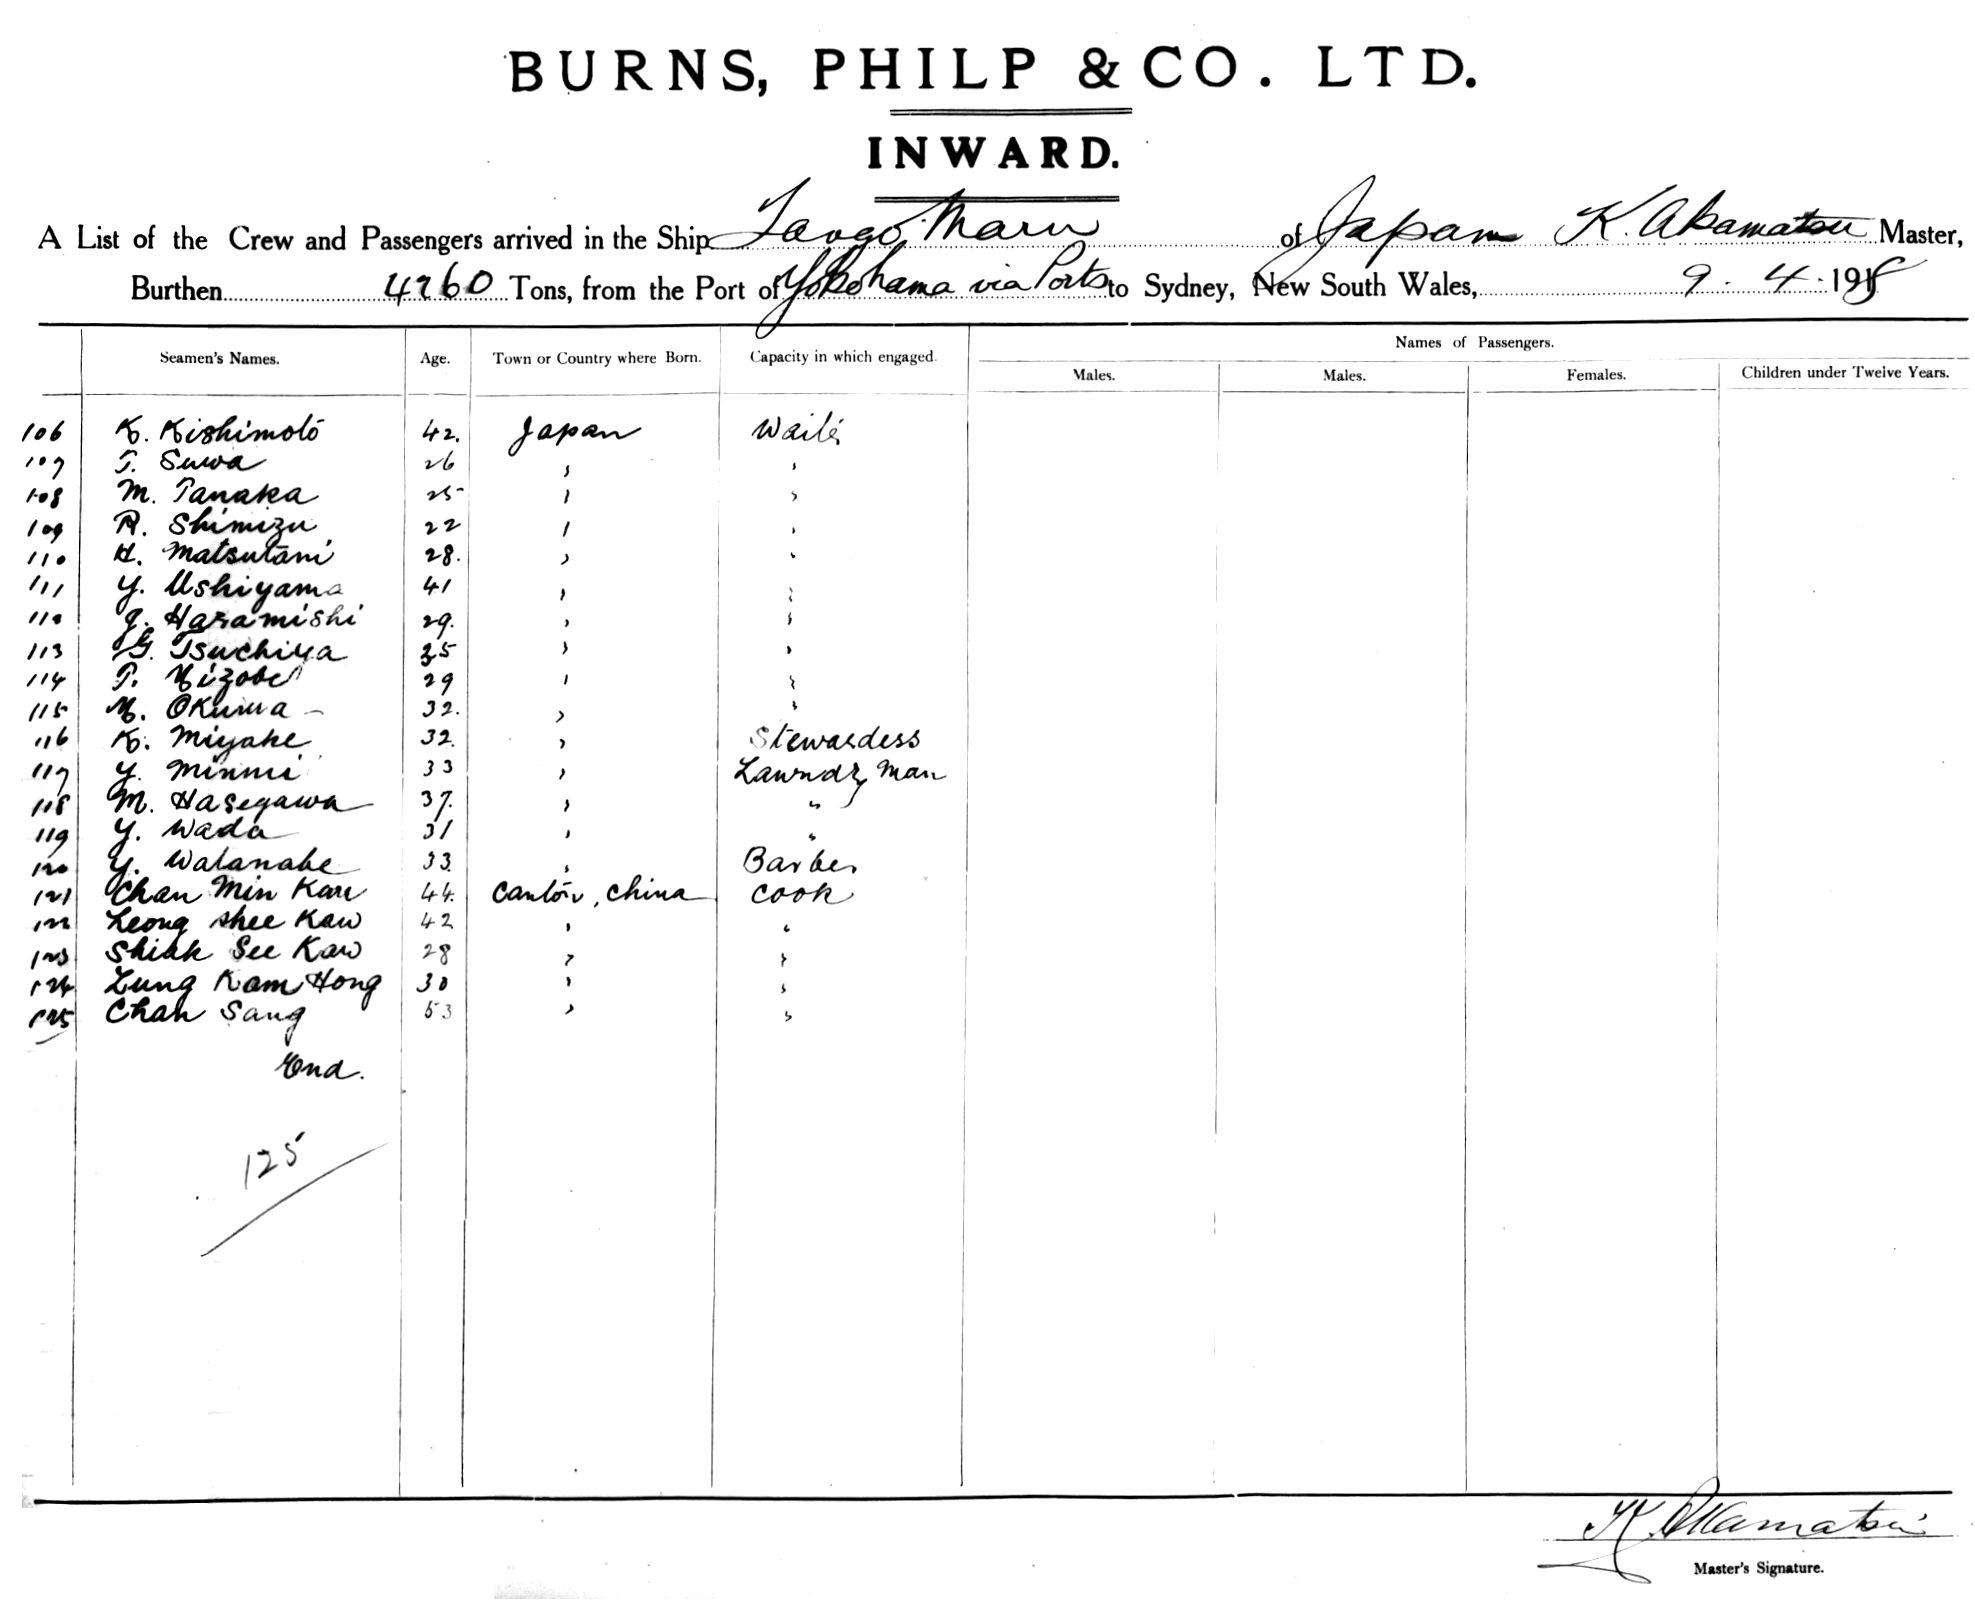 BURNS, PHILP & CO. LTD.
INWARD.
A List of the Crew and Passengers arrived in the Ship Tango Maru of Japan K. Akamatsu Master,
Burthen 4260 Tons, from the Port of Yokohama via Ports to Sydney, New South Wales, 9. 4. 1918
Names of Passengers.
Seamen's Names. Age. Town or Country where Born. Capacity in which engaged. Males. Males. Females. Children under Twelve Years.
106 K. Kishimoto 42. Japan Waiter
107 T. Suwa 26 " "
108 M. Tanaka 25 " "
109 R. Shimizu 22 " "
110 H. Matsutani 28. " "
111 Y. Ushiyama 41 " "
112 Haramishi 29. " "
113 G. Tsuchiya 35 " "
114 T. Mizobe 29 " "
115 M. Okuma 32. " "
116 K. Miyake 32. " Stewardess
117 Y. Minmi 33 " Laundry man
118 M. Hasegawa 37. " "
119 Y. Wada 31 " "
120 Y. Watanabe 33. " Barber
121 Chan Min Kaw 44. Canton, China Cook
122 Leong Shee Kaw 42 " "
123 Shiak See Kaw 28 " "
124 Lung Kam Hong 30 " "
125 Chan Sang 53 " "
End.
125
K. Akamatsu
Master's Signature.